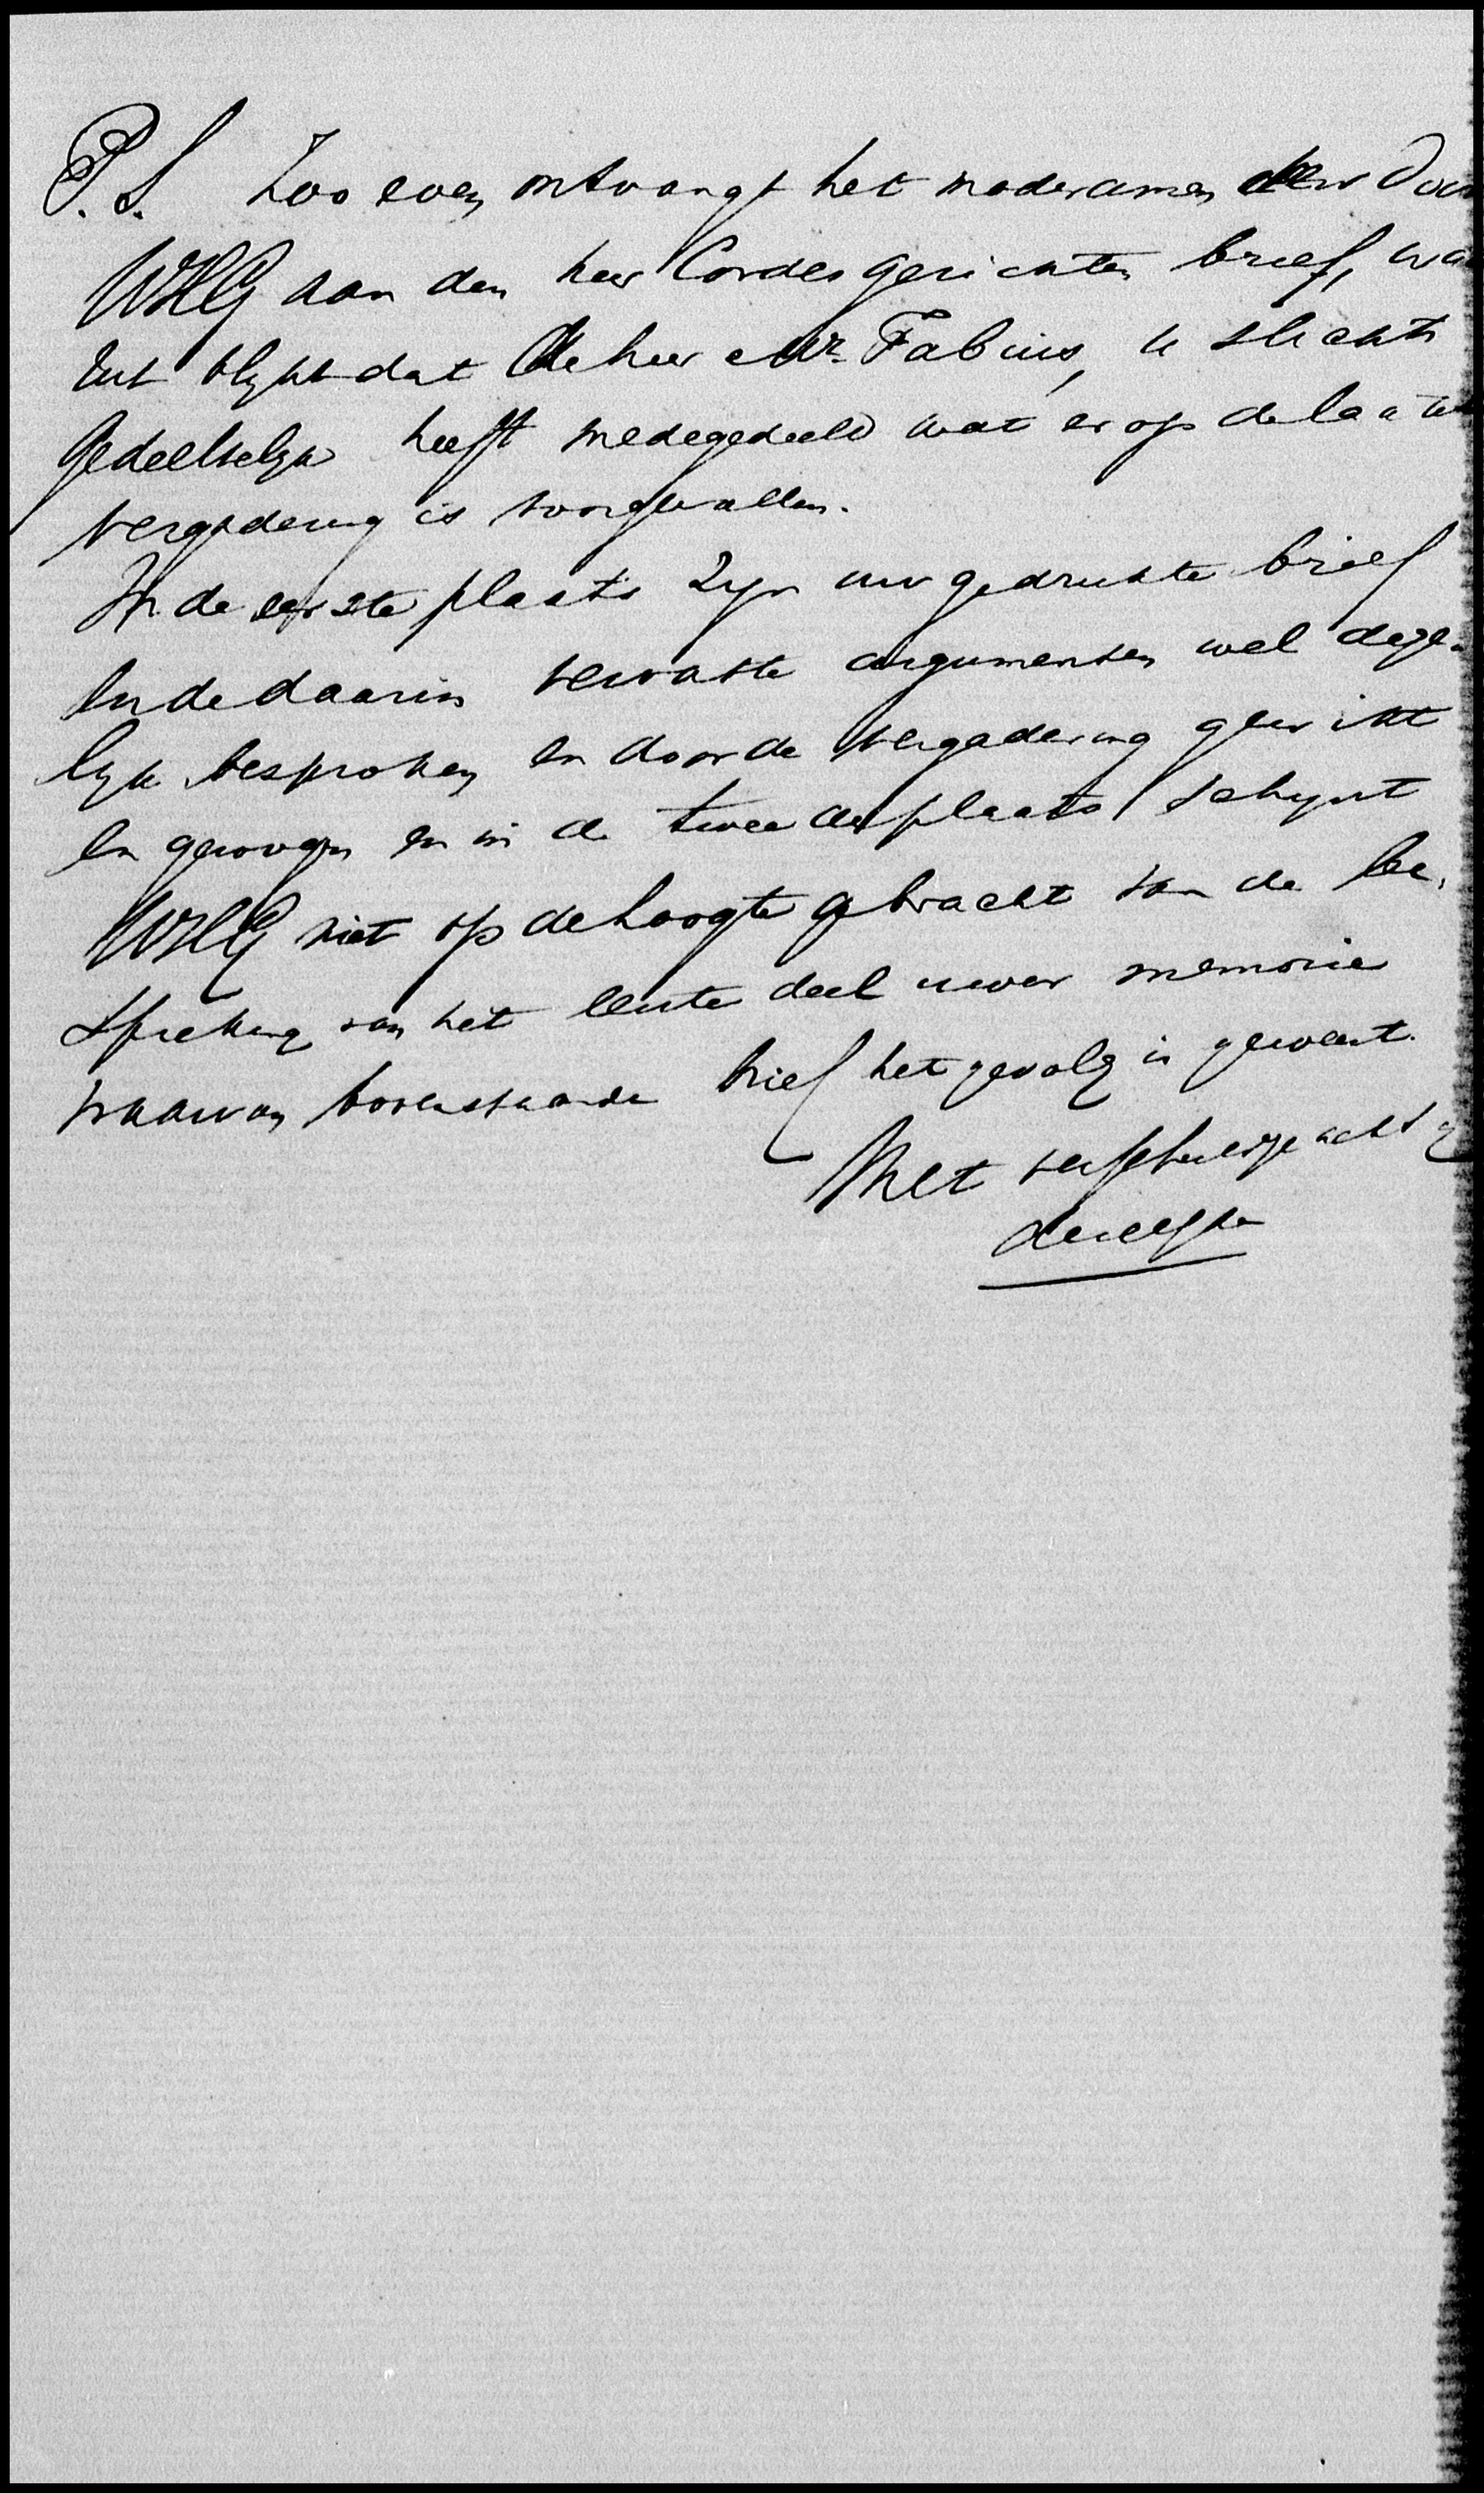 P.S. Zoo even ontvangt het moderamen den door
WHG aan den heer Cordes gerichten brief, wa
uit blykt dat de heer Mr. Fabius, U slechts
gedeeltelyk heeft medegedeeld wat er op de laatste
vergadering is voorgevallen.
In de eerste plaats zyn uw gedrukte brief
en de daarin vervatte argumenten wel dege-
lyk besproken en door de vergadering gewikt
en gewogen en in de tweede plaats schynt
WHG niet op de hoogte gebracht van de be-
spreking van het eerste deel uwer memorie
waarvan bovenstaande brief het gevolg is geweest.
Met verschuldigde achtg
dezelfde